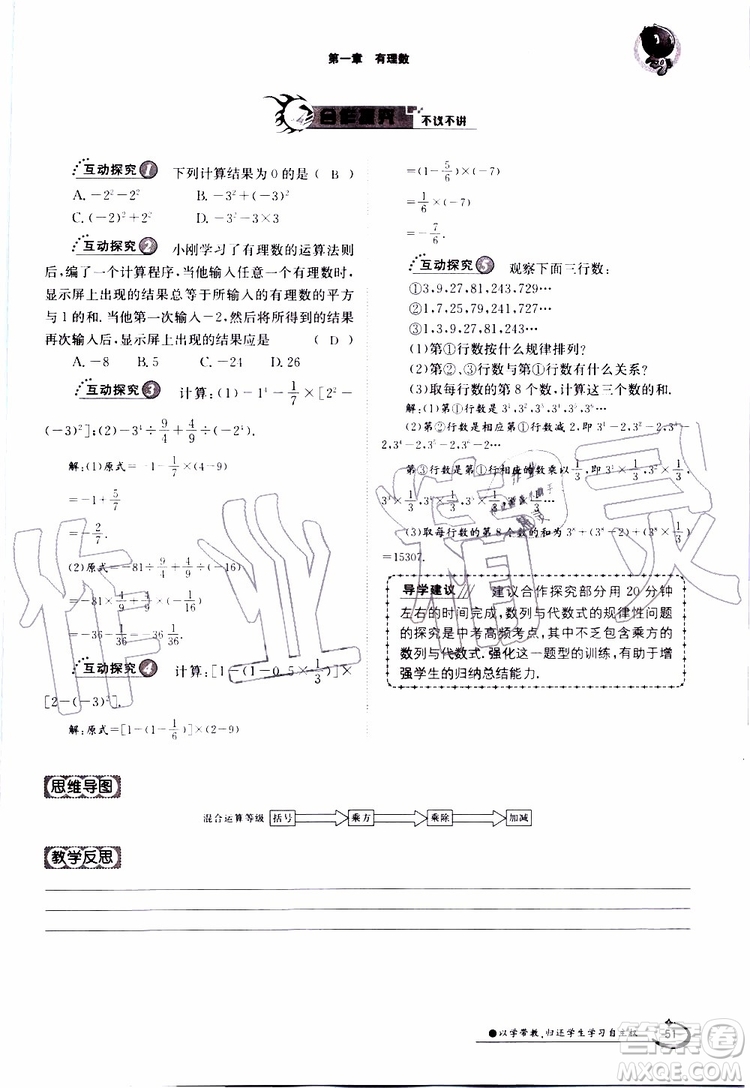 第一章　有理数
合作探究 不议不讲
互动探究1　下列计算结果为0的是（ B ）
A. －2²－2²　B. －3²＋(－3)²
C. (－2)²＋2²　D. －3²－3×3
互动探究2　小刚学习了有理数的运算法则
后,编了一个计算程序,当他输入任意一个有理数时,
显示屏上出现的结果总等于所输入的有理数的平方
与1的和.当他第一次输入－2,然后将所得到的结果
再次输入后,显示屏上出现的结果应是　（ D ）
A. －8　B. 5　C. －24　D. 26
互动探究3　计算:(1)－1⁴－1/7×[2²－
(－3)²];(2)－3⁴÷9/4＋9/4÷(－2⁴).
解:(1)原式＝－1－1/7×(4－9)
＝－1＋5/7
＝－2/7.
(2)原式＝－81÷9/4＋9/4÷(－16)
＝－81×4/9＋9/4×(－1/16)
＝－36－9/64＝－36 9/64.
互动探究4　计算:[1－(1－0.5×1/3)]×
[2－(－3)²].
解:原式＝[1－(1－1/6)]×(2－9)
＝(1－5/6)×(－7)
＝1/6×(－7)
＝－7/6.
互动探究5　观察下面三行数:
①3,9,27,81,243,729…
②1,7,25,79,241,727…
③1,3,9,27,81,243…
(1)第①行数按什么规律排列?
(2)第②、③行数与第①行数有什么关系?
(3)取每行数的第8个数,求这三个数的和.
解:(1)第①行数是3¹,3²,3³,3⁴,3⁵,3⁶…
(2)第②行数是相应第①行数减2,即3¹－2,3²－
2,3³－2,3⁴－2,3⁵－2,3⁶－2…
第③行数是相应第①行相应的数乘以1/3,即3¹×1/3,
3²×1/3,3³×1/3,3⁴×1/3,3⁵×1/3,3⁶×1/3…
(3)取每行数的第8个数的和为3⁸＋(3⁸－2)＋(3⁸×1/3)
＝15307.
导学建议　建议合作探究部分用20分钟
左右的时间完成,数列与代数式的规律性问题
的探究是中考高频考点,其中不乏包含乘方的
数列与代数式.强化这一题型的训练,有助于增
强学生的归纳总结能力.
思维导图
混合运算等级 括号 乘方 乘除 加减
教学反思
●以学带教,归还学生学习自主权
51
作业精灵
答案卷
MXQE.COM